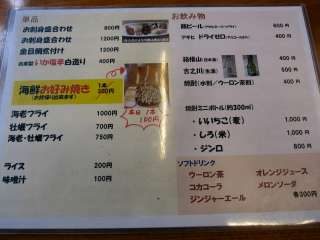 単品
お刺身盛合わせ 800円
お刺身盛合わせ 1200円
金目鯛煮付け 1200円
いか塩辛白造り 400円
海鮮お好み焼き
本日 1本
100円
海老フライ 1000円
牡蠣フライ 750円
海老・牡蠣フライ 750円
ライス 200円
味噌汁 100円
お飲み物
瓶ビール 600円
アサヒ ドライゼロ 400円
400円
吉之川 500円
焼酎(水割/ウーロン茶割) 400円
焼酎ミニボトル(約300ml)
・いいちこ(麦) 1,000円
・しろ(米) 1,000円
・ジンロ 800円
ソフトドリンク
ウーロン茶 オレンジジュース
コカコーラ メロンソーダ
ジンジャーエール 各300円